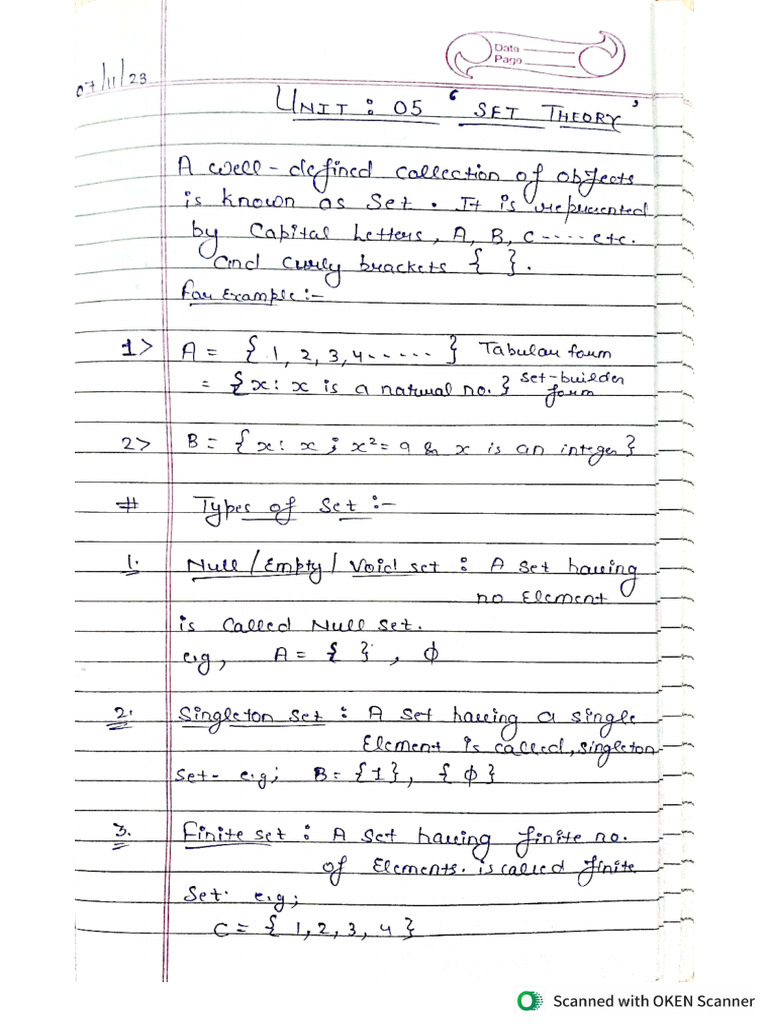 Date
Page
07/11/23
UNIT : 05 ‘ SET THEORY ’
A well-defined collection of objects
is known as Set. It is represented
by Capital Letters, A, B, C ---- etc.
and curly brackets { }.
For Example :-
1> A = { 1, 2, 3, 4 ----- } Tabular form
= { x : x is a natural no. } set-builder form
2> B = { x : x ; x² = 9 & x is an integer }
# Types of Set :-
1. Null / Empty / Void set : A set having
no Element
is Called Null set.
e.g, A = { } , ϕ
2. Singleton set : A set having a single
Element is called, singleton
set- e.g; B = {1}, { ϕ }
3. Finite set : A set having finite no.
of Elements. is called finite
Set. e.g;
C = { 1, 2, 3, 4 }
Scanned with OKEN Scanner